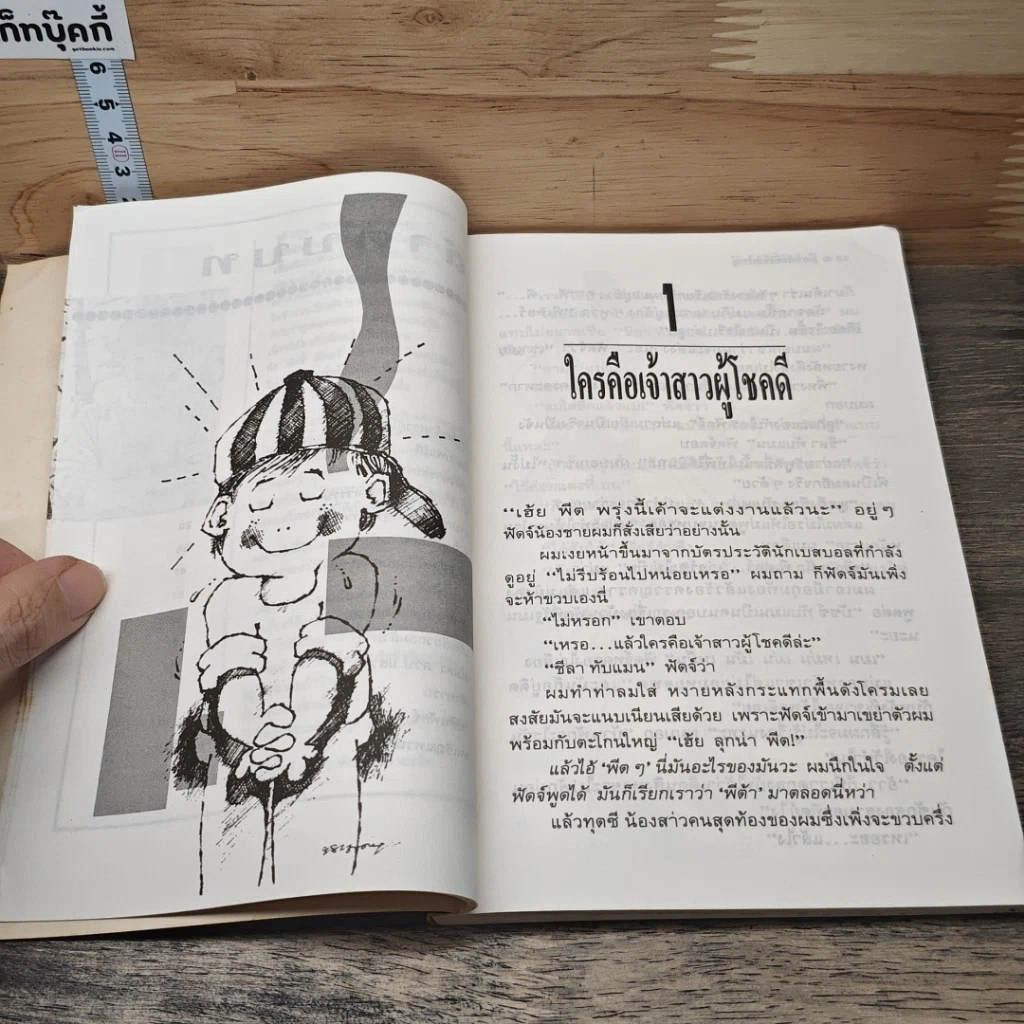 ก็ทบุ๊คกี้
getbookie.com
6
5
4
3
2
1
ใครคือเจ้าสาวผู้โชคดี
“เฮ้ย พีต พรุ่งนี้เค้าจะแต่งงานแล้วนะ” อยู่ๆ
ฟัดจ์น้องชายผมก็สั่งเสียว่าอย่างนั้น
ผมเงยหน้าขึ้นมาจากบัตรประวัตินักเบสบอลที่กำลัง
ดูอยู่ “ไม่รีบร้อนไปหน่อยเหรอ” ผมถาม ก็ฟัดจ์มันเพิ่ง
จะห้าขวบเองนี่
“ไม่หรอก” เขาตอบ
“เหรอ...แล้วใครคือเจ้าสาวผู้โชคดีล่ะ”
“ชีลา ทับแมน” ฟัดจ์ว่า
ผมทำท่าลมใส่ หงายหลังกระแทกพื้นดังโครมเลย
สงสัยมันจะแนบเนียนเสียด้วย เพราะฟัดจ์เข้ามาเขย่าตัวผม
พร้อมกับตะโกนใหญ่ “เฮ้ย ลุกน่า พีต!”
แล้วไอ้ ‘พีต ๆ’ นี่มันอะไรของมันวะ ผมนึกในใจ ตั้งแต่
ฟัดจ์พูดได้ มันก็เรียกเราว่า ‘พีต้า’ มาตลอดนี่หว่า
แล้วทุตซี น้องสาวคนสุดท้องของผมซึ่งเพิ่งจะขวบครึ่ง